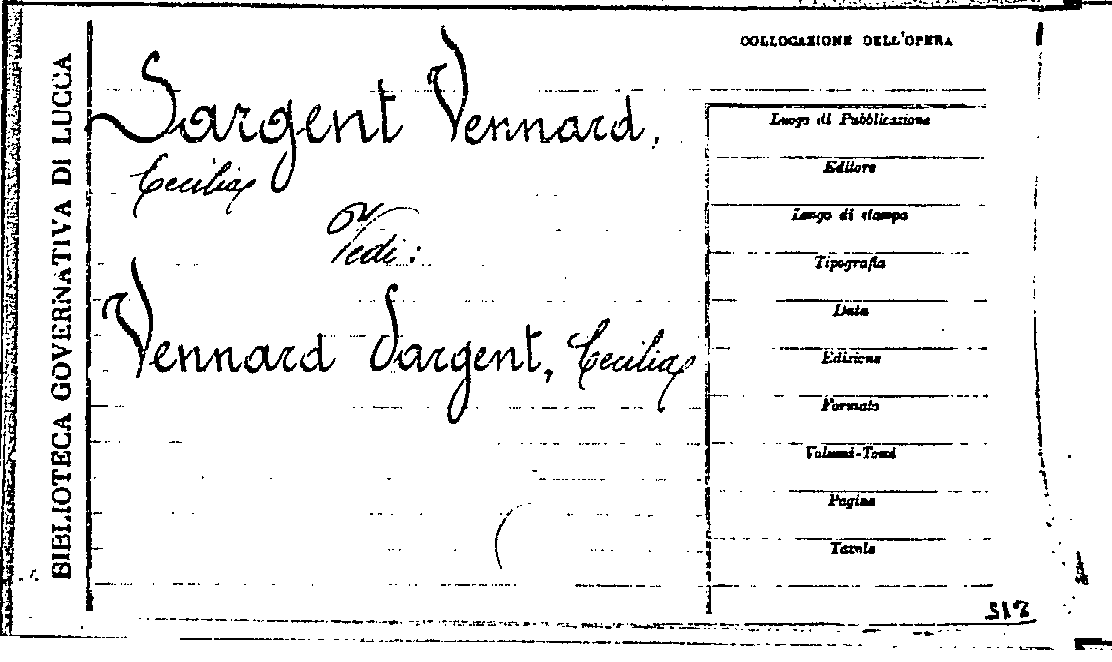 BIBLIOTECA GOVERNATIVA DI LUCCA
COLLOCAZIONE DELL'OPERA
Sargent Vennard,
Cecilia
Vedi:
Vennard Sargent, Cecilia
Luogo di Pubblicazione
Editore
Luogo di stampa
Tipografia
Data
Edizione
Formato
Volumi-Tomi
Pagine
Tavole